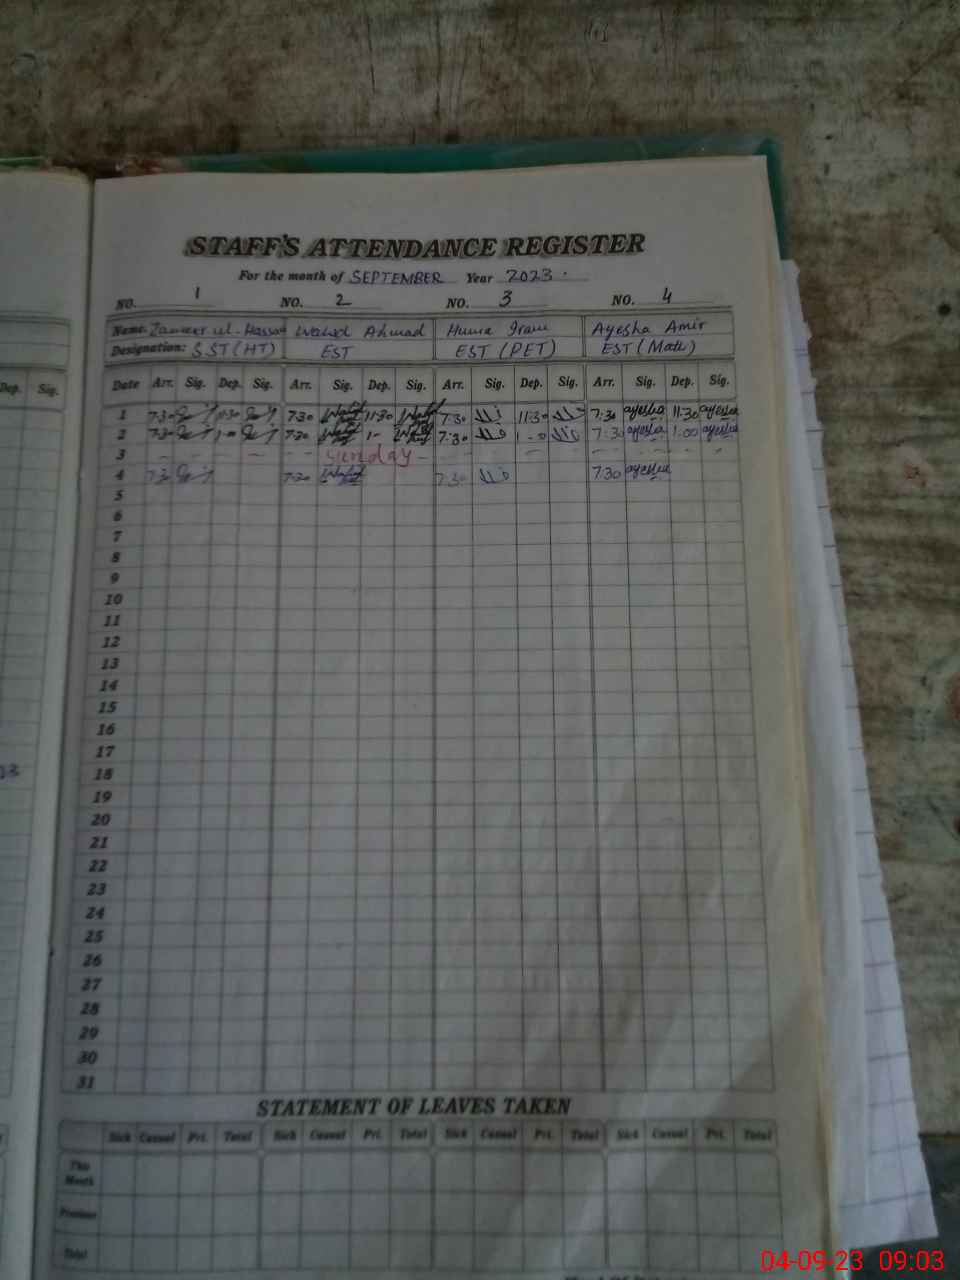 STAFF'S ATTENDANCE REGISTER
For the month of SEPTEMBER Year 2023
NO. 1 NO. 2 NO. 3 NO. 4
Name: Zameer ul-Hassan Wahid Ahmad Huma Iram Ayesha Amir
Designation: SST(HT) EST EST (PET) EST (Math)
Dep. Sig. Date Arr. Sig. Dep. Sig. Arr. Sig. Dep. Sig. Arr. Sig. Dep. Sig. Arr. Sig. Dep. Sig.
1 7:30 11:30 7:30 11:30 7:30 11:30 7:30 ayesha 11:30 ayesha
2 7:30 1-00 7:30 1- 7:30 1-00 7:30 ayesha 1:00 ayesha
3 Sunday
4 7:30 7:30 7:30 7:30 ayesha
5
6
7
8
9
10
11
12
13
14
15
16
17
18
19
20
21
22
23
24
25
26
27
28
29
30
31
STATEMENT OF LEAVES TAKEN
Sick Casual Pri. Total Sick Casual Pri. Total Sick Casual Pri. Total Sick Casual Pri. Total
This Month
Previous
Total
04-09-23 09:03